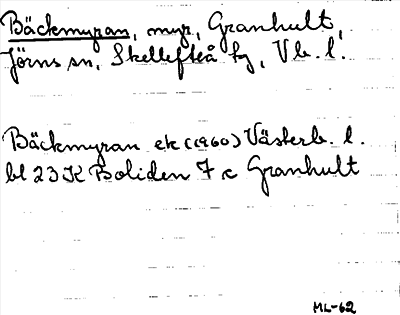 Bäckmyran, myr, Granhult,
Jörns sn, Skellefteå tg, Vb. l.
Bäckmyran ek (1960) Västerb. l.
bl 23 K Boliden 7 c Granhult
ML-62